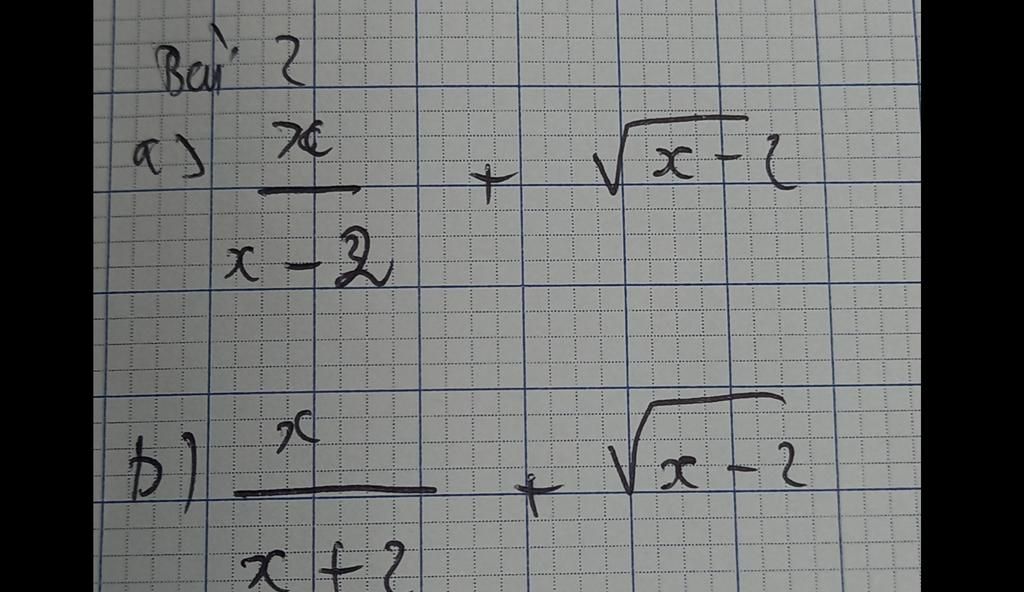 Bài 2
a) x/(x - 2) + √(x - 2)
b) x/(x + 2) + √(x - 2)